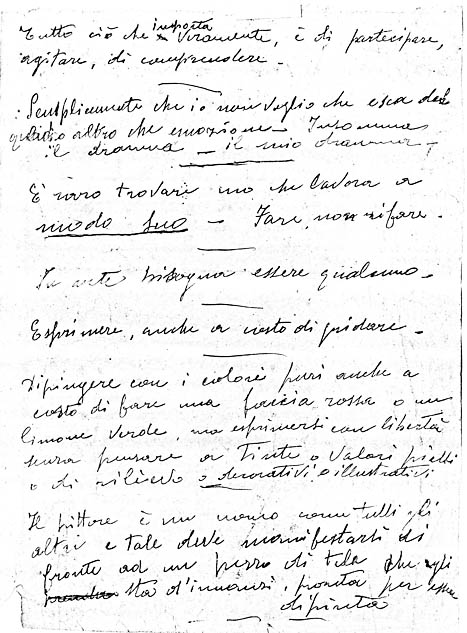 Tutto ciò che importa veramente, è di partecipare,
agitare, di comprendere -
Semplicemente che io non voglio che esca dal
quadro altro che emozione - Insomma
il dramma - il mio dramma -
È raro trovare uno che lavora a
modo suo - Fare, non rifare -
In arte bisogna essere qualcuno -
Esprimere, anche a costo di gridare -
Dipingere con i colori puri anche a
costo di fare una faccia rossa o un
limone verde, ma esprimersi con libertà
senza pensare a tinte o valori piatti
o di rilievo o decorativi o illustrativi
Il pittore è un uomo come tutti gli
altri e tale deve manifestarsi di
fronte ad un pezzo di tela che egli
sta d'innanzi, pronta per essere
dipinta